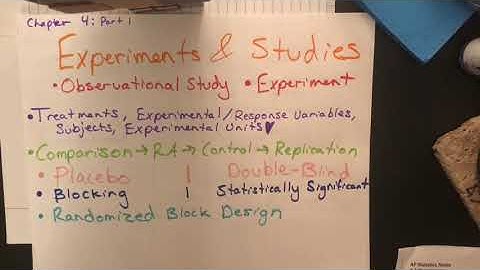 Chapter 4: Part 1
Experiments & Studies
• Observational Study • Experiment
• Treatments, Experimental/Response Variables,
Subjects, Experimental Units
• Comparison → RA → Control → Replication
• Placebo | Double-Blind
• Blocking | Statistically Significant
• Randomized Block Design
AP Statistics Notes